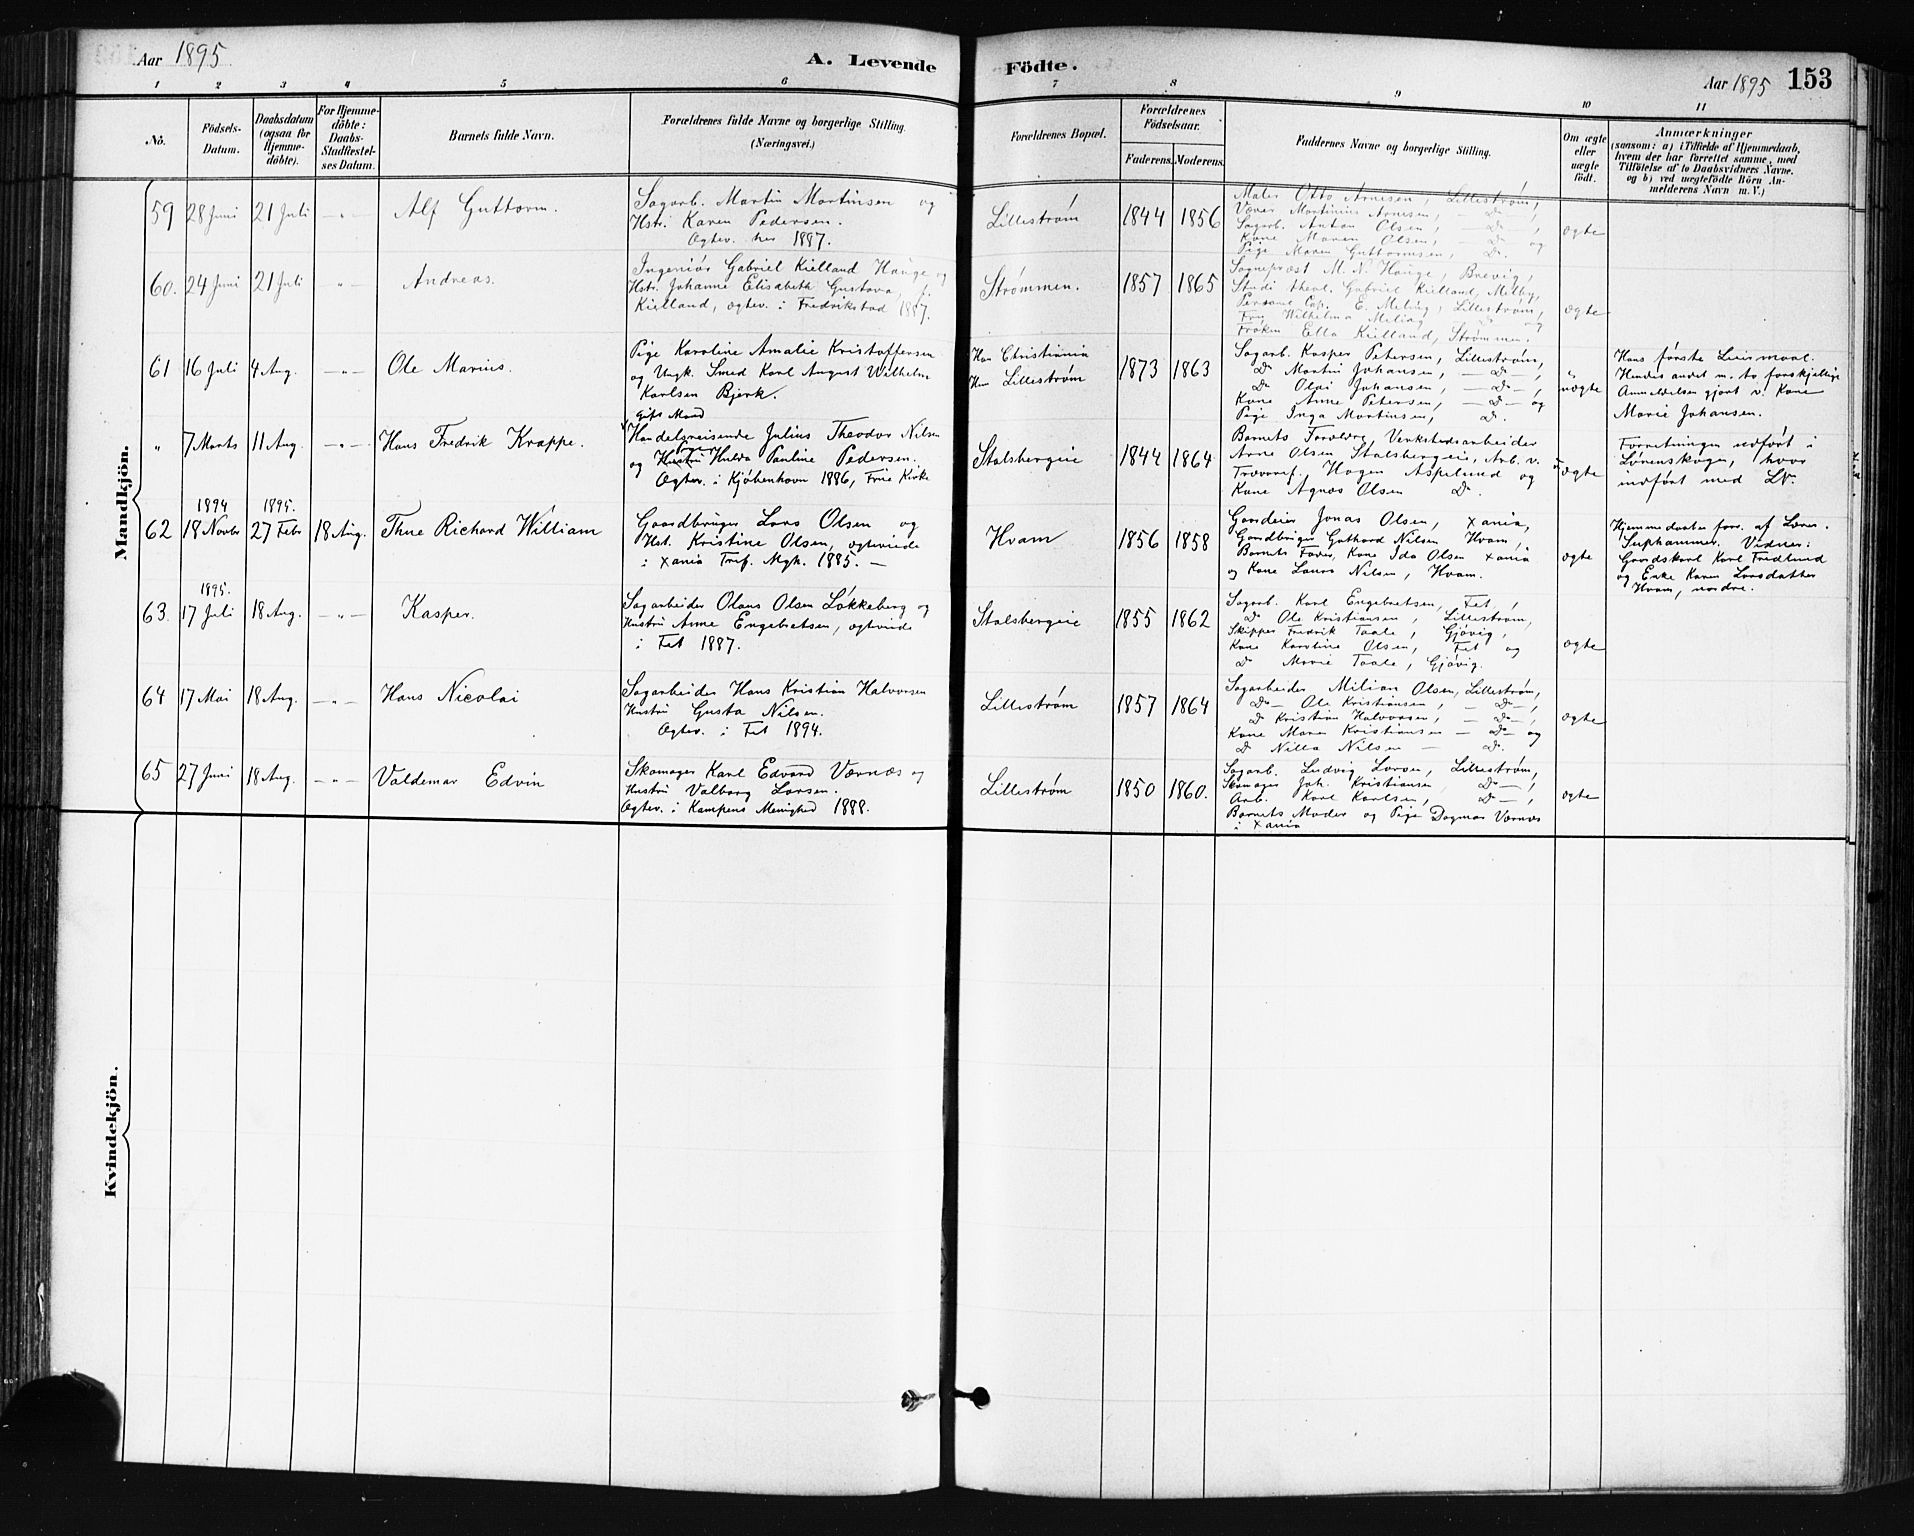 Aar 1895
A. Levende Födte.
Aar 1895 153
1 2 3 4 5 6 7 8 9 10 11
No.
Födsels-Datum.
Daabsdatum (ogsaa for Hjemme-döbte).
For Hjemme-döbte: Daabs-Stadfæstel-ses Datum.
Barnets fulde Navn.
Forældrenes fulde Navne og borgerlige Stilling.
(Næringsvei.)
Forældrenes Bopæl.
Forældrenes Födselsaar.
Faderens. Moderens.
Faddernes Navne og borgerlige Stilling.
Om ægte eller uægte födt.
Anmærkninger
(saasom: a) i Tilfælde af Hjemmedaab, hvem der har forrettet samme, med Tilföielse af to Daabsvidners Navne, og b) ved uægtefödte Börn An-melderens Navn m. V.)
Mandkjön.
59 28 Juni 21 Juli - " - Alf Guttorm.
Sagarb. Martin Martinsen og
Hstr. Karen Pedersen.
Ægtev. her 1887.
Lillestrøm 1844 1856
Maler Otto Arnesen, Lillestrøm,
Væver Martinius Arnesen, Do,
Sagarb. Anton Olsen, Do,
Kone Maren Olsen, Do og
Pige Maren Guttormsen, Do.
ægte
60. 24 Juni 21 Juli " Andreas.
Ingeniör Gabriel Kielland Hauge og
Hstr. Johanne Elisabeth Gustava f.
Kielland, ægtev. i Fredrikstad 1887.
Strømmen. 1857 1865
Sognepræst M. N. Hauge, Brevig,
Stud. theol. Gabriel Kielland, Melby,
Personel Cap. E. Meling, Lillestrøm,
Fru Wilhelma Meling Do og
Frøken Ella Kielland, Strømmen.
ægte
61 16 Juli 4 Aug. - " - Ole Marius.
Pige Karoline Amalie Kristoffersen
og Ungk. Smed Karl August Wilhelm
Karlsen Bjerk.
Han Christiania
Hun Lillestrøm
1873 1863
Sagarb. Kasper Petersen, Lillestrøm,
Do Martin Johansen, - Do -,
Do Olai Johansen, - Do -,
Kone Anne Petersen, - Do - og
Pige Inga Martinsen, Do.
uægte
Hans første Leiermaal.
Hendes andet m. to forskjellige
Anmeldelsen gjort v. Kone
Marie Johansen.
" 7 Marts 11 Aug. - " - Hans Fredrik Krappe.
gift Mand
Handelsreisende Julius Theodor Nilsen
og Hustru Hulda Pauline Pedersen.
Ægtev. i Kjøbenhavn 1886, Frie Kirke
Stalsbergeie 1844 1864
Barnets Forældre, Verkstedsarbeider
Arne Olsen Stalsbergeie, Arb. v.
Trævaref. Hagen Aspelund og
Kone Agnes Olsen Do.
uægte
Forretningen udført i
Lørenskogen, hvor
indført med LNr.
1894 1895.
62 18 Novbr 27 Febr 18 Aug. Thue Richard William
Gaardbruger Lars Olsen og
Hst. Kristine Olsen, ægteviede
i Xania Tref. Mgh. 1885. -
Hvam 1856 1858
Gaardeier Jonas Olsen, Xania,
Gaardbruger Guthard Nilsen Hvam,
Barnets Fader, Kone Ida Olsen Xania
og Kone Laura Nilsen, Hvam.
ægte
Hjemmedaaben forr. af Lærer
Suphammer. Vidner:
Gaardskarl Karl Fredlund
og Enke Karen Larsdatter
Hvam, nordre.
1895.
63. 17 Juli 18 Aug. - " - Kasper.
Sagarbeider Olaus Olsen Løkkeberg og
Hustru Anne Engebretsen, ægteviede
i Fet 1887.
Stalsbergeie 1855 1862
Sagarb. Karl Engebretsen, Fet,
Do Ole Kristiansen, Lillestrøm,
Skipper Fredrik Taale, Gjøvig,
Kone Karoline Olsen, Fet og
Do Marie Taale, Gjøvig.
ægte
64 17 Mai 18 Aug. - " - Hans Nicolai
Sagarbeider Hans Kristian Halvorsen
Hustru Gusta Nilsen.
Ægtev. i Fet 1894.
Lillestrøm 1857 1864
Sagarbeider Milian Olsen, Lillestrøm,
Do - Ole Kristiansen, - Do -,
Do Kristian Halvorsen, - Do -,
Kone Maren Kristiansen - Do - og
Do Nilla Nilsen - Do.
ægte
65 27 Juni 18 Aug. - " - Valdemar Edvin
Skomager Karl Edvard Værnæs og
Hustru Valborg Larsen.
Ægtev. i Kampens Menighed 1888.
Lillestrøm 1850 1860.
Sagarb. Ludvig Larsen, Lillestrøm,
Skomager Joh. Kristiansen, Do -,
Arb. Karl Karlsen, Do -,
Barnets Moder og Pige Dagmar Værnæs
i Xania
ægte
Kvindekjön.